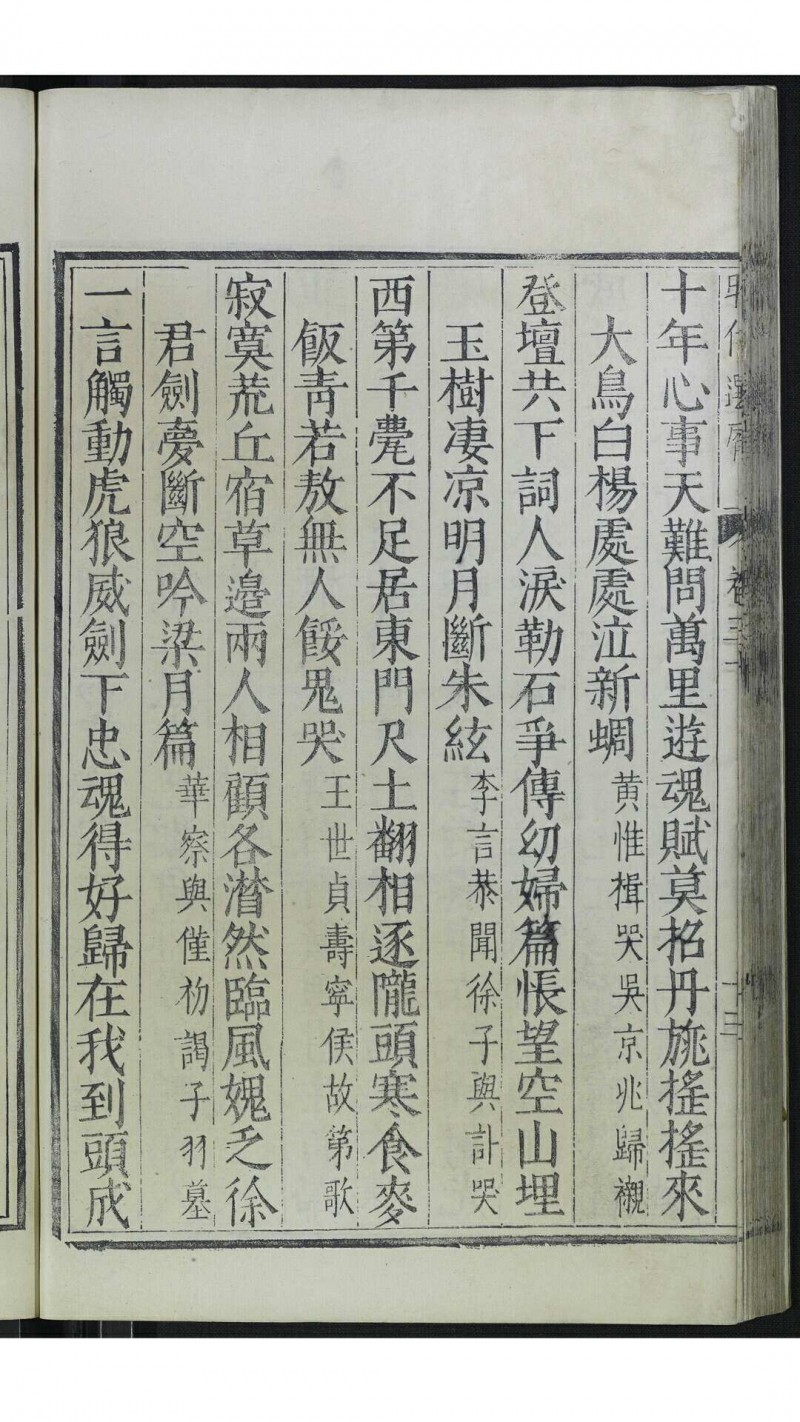 十年心事天難問萬里遊魂賦莫招丹旐搖搖來
大鳥白楊處處泣新蜩黃惟楫哭吳京兆歸櫬
登壇共下詞人淚勒石爭傳幼婦篇悵望空山埋
玉樹凄凉明月斷朱絃李言恭聞徐子與訃哭
西第千甍不足居東門尺土翻相逐隴頭寒食麥
飯青若敖無人餒鬼哭王世貞壽寧侯故第歌
寂寞荒丘宿草邉兩人相顧各潸然臨風媿乏徐
君劍夣斷空吟梁月篇華察與僅初謁子羽墓
一言觸動虎狼威劍下忠魂得好歸在我到頭成